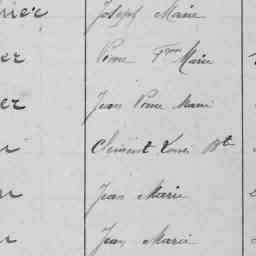 nier Joseph Marie
er Pierre Fçois Marie
er Jean Pierre Marie
Clément Louis Bte
Jean Marie
Jean Marie